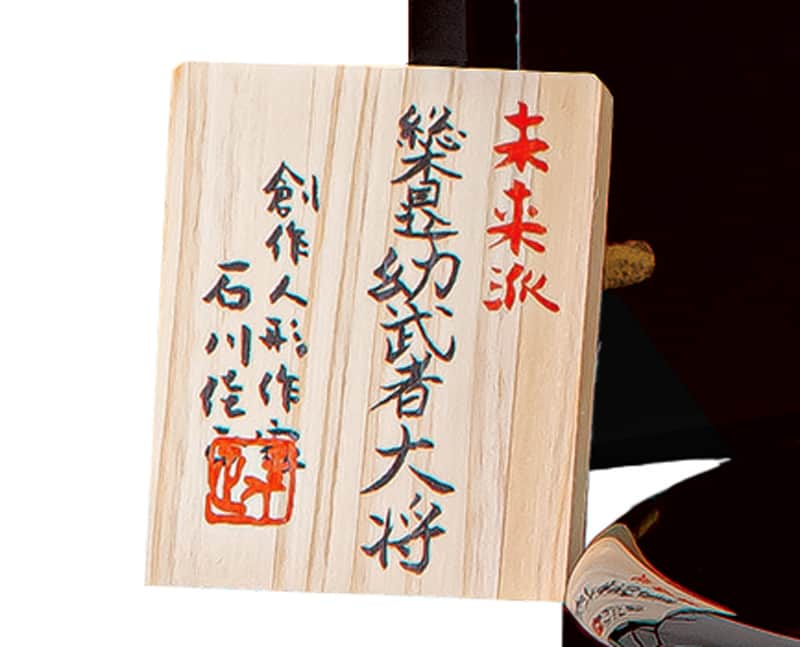 未来派
総木目込幼武者大将
創作人形作家
石川佳